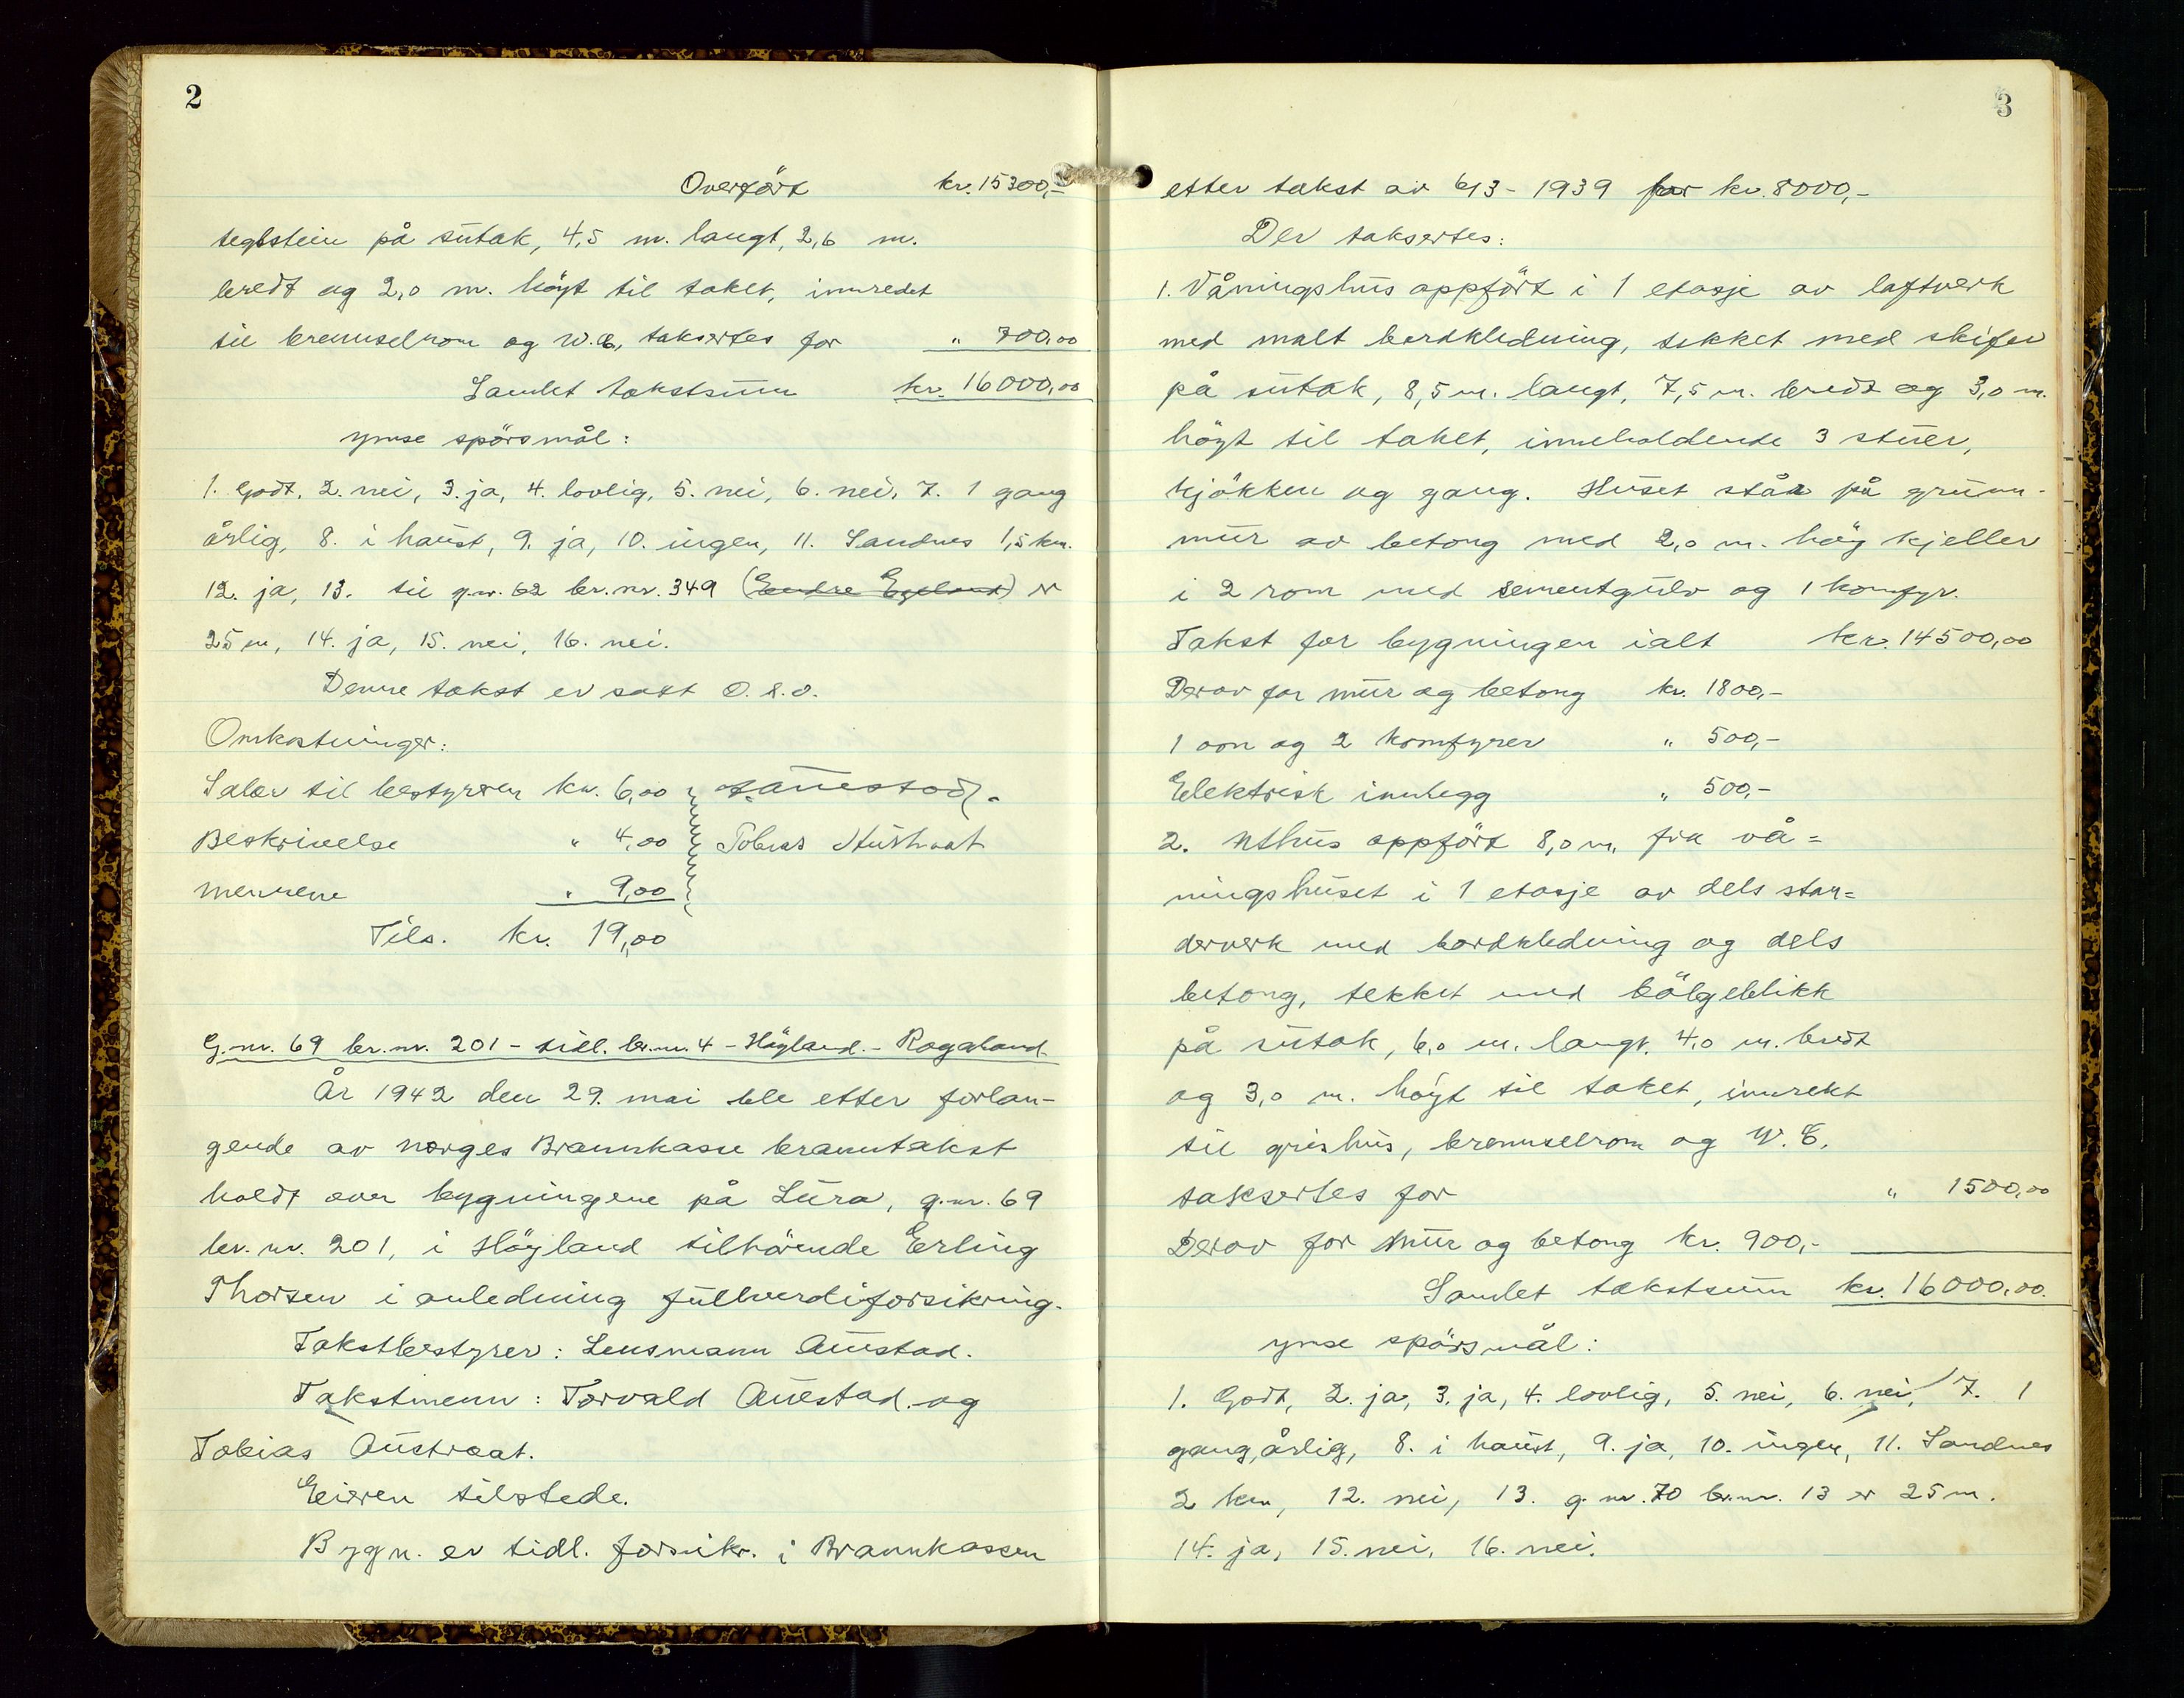 2
Overfört kr. 15300,-
teglstein på sutak, 4,5 m. langt, 2,6 m.
bredt og 2,0 m. höyt til taket, innredet
til brenselrom og W.C, taksertes for " 700,00
Samlet takstsum kr. 16000,00
ymse spörsmål:
1. Godt, 2. nei, 3. ja, 4. lovlig, 5. nei, 6. nei, 7. 1 gang
årlig, 8. i haust, 9. ja, 10. ingen, 11. Sandnes 1,5 km.
12. ja, 13. til g.nr. 62 br.nr. 349 (Endre Egeland) er
25 m, 14. ja, 15. nei, 16. nei.
Denne takst er satt
Omkostninger:
Salær til bestyreren kr. 6,00
Beskrivelse " 4,00 Tobias Austraat
mennene " 9,00
Tils. kr. 19,00
G.nr. 69 br.nr. 201 - tidl. br.nr. 4 - Höyland - Rogaland
År 1942 den 29. mai ble etter forlan-
gende av norges Brannkasse branntakst
holdt over bygningene på Lura, g.nr. 69
br.nr. 201, i Höyland tilhörende Erling
Thorsen i anledning fullverdiforsikring.
Takstbestyrer: Lensmann Auestad.
Takstmenn: Torvald Auestad og
Tobias Austraat.
Eieren tilstede.
Bygn. er tidl. forsikr. i Brannkassen
3
etter takst av 6/3 - 1939 for kr. 8000,-
Der taksertes:
1. Våningshus oppfört i 1 etasje av laftverk
med malt bordkledning, tekket med skifer
på sutak, 8,5 m. langt, 7,5 m. bredt og 3,0 m.
höyt til taket, inneholdende 3 stuer,
kjökken og gang. Huset står på grunn-
mur av betong med 2,0 m. höy kjeller
i 2 rom med sementgulv og 1 komfyr.
Takst for bygningen ialt kr. 14500,00
Derav for mur og betong kr. 1800,-
1 ovn og 2 komfyrer " 500,-
Elektrisk innlegg " 500,-
2. Uthus oppfört 8,0 m. fra vå=
ningshuset i 1 etasje av dels stan=
derverk med bordkledning og dels
betong, tekket med bölgeblikk
på sutak, 6,0 m. langt, 4,0 m. bredt
og 3,0 m. höyt til taket, innrekt
til grishus, brenselrom og W.C.
taksertes for " 1500,00
Derav for mur og betong kr. 900,-
Samlet takstsum kr. 16000,00.
ymse spörsmål:
1. Godt, 2. ja, 3. ja, 4. lovlig, 5. nei, 6. nei, 7. 1
gang, årlig, 8. i haust, 9. ja, 10. ingen, 11. Sandnes
2 km, 12. nei, 13. g.nr. 70 br.nr. 13 er 25 m.
14. ja, 15. nei, 16. nei.